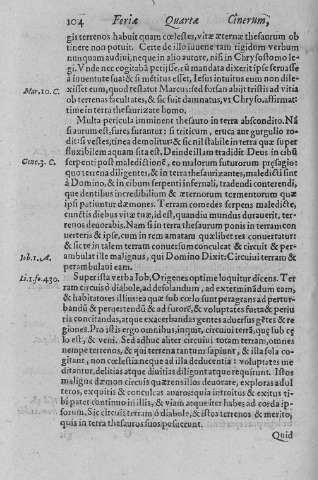 104 Feriæ Quartæ Cinerum,
gis terrenos habuit quam cœlestes, vitæ æternæ thesaurum ob
tinere non potuit. Certe de illo iuuene tam rigidum verbum
nunquam audiui, neque in alio autore, nisi in Chrysostomo le-
gi. Vnde nec cogitabā petijsse. cū mandata dixerit ipse seruasse
à iuuentute sua: & si mētitus esset, Iesus intuitus eum non dile-
Mar. 10. C. xisset eum, quod testatur Marcus: sed forsan abijt tristis ad vitia
ob terrenas facultates, & sic fuit damnatus, vt Chryso. affirmat:
time in terra thesaurizare homo.
Multa pericula imminent thesauro in terra abscondito. Nā
si aurum est, fures furantur: si triticum, eruca aut gurgulio ro-
dit: si vestes, tinea demolitur: & sic nil stabile in terra quæ super
fluxibilem aquam sita est. Deinde illam tradidit Deus in cibū
Gene. 3. C. serpenti post maledictionē, eo malorum futurorum presagio:
quo terrena diligentes, & in terra thesaurizantes, maledicti sint
à Domino, & in cibum serpenti infernali, tradendi conterendi,
que dentibus incredibilium & æternorum tormentorum quæ
ipsi patiuntur dæmones. Terram comedes serpens maledicte,
cunctis diebus vitæ tuæ, id est, quandiu mundus durauerit, ter-
renos deuorabis. Nam si in terra thesaurum ponis in terram con
uerteris & ipse, cum in rem amatam quælibet res conuertatur:
& sic te in talem terram conuersum conculcat & circuit & per-
Iob. 1. A. ambulat ille malignus, qui Domino Dixit: Circuiui terram &
perambulaui eam.
Li. 1. fo. 430. Super ista verba Iob, Origenes optime loquitur dicens. Ter
ram circuis ô diabole, ad desolandum, ad exterminādum eam,
& habitatores illius: ea quæ sub cœlo sunt peragrans ad pertur-
bandū & percutendū & ad furorē, & voluptates furta & periu
ria concitandas, atque exacerbandas gentes aduersus gētes & re
giones. Pro istis ergo omnibus, inquit, circuiui terrā, quę sub cę
lo est, & veni. Sed adhuc aliter circuiui totam terram, omnes
nempe terrenos, & qui terrena tantum sapiunt, & illa sola co-
gitant, non cœlestia neque ad illa deducentia: voluptates me
ditantur, delitias atque diuitias diligunt atque requirunt. Istos
malignꝰ dæmon circuis quærens illos deuorare, exploras adul
teros, exquiris & conculcas auaros: quia introitus & exitus ti-
bi patet continuo in illis, & viam atque iter habes ad corda ip-
sorum. Sic circuis terram ô diabole, & istos terrenos & merito,
quia in terra thesauros suos posuerunt.
Quid